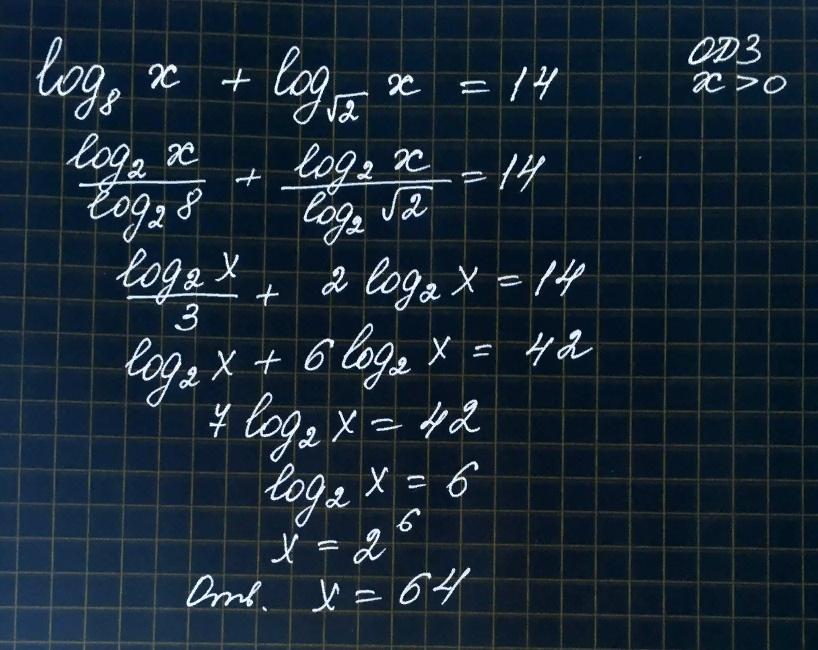 log₈ x + log_√2 x = 14
ОДЗ
x > 0
log₂ x / log₂ 8 + log₂ x / log₂ √2 = 14
log₂ x / 3 + 2 log₂ x = 14
log₂ x + 6 log₂ x = 42
7 log₂ x = 42
log₂ x = 6
x = 2⁶
Отв. x = 64